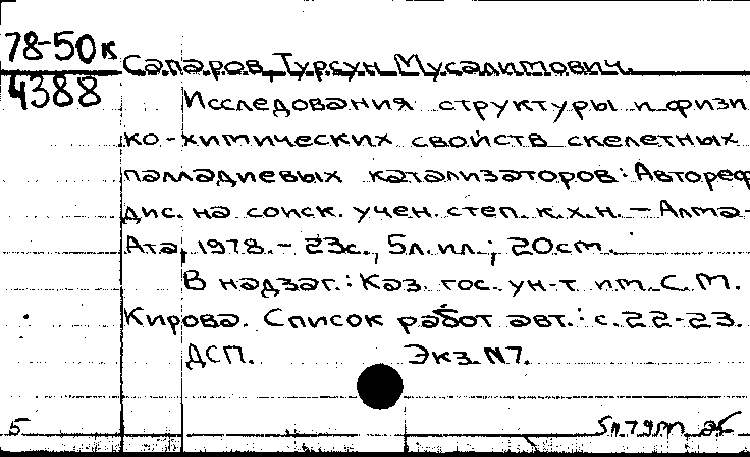 78-50к
4388
Сапаров, Турсун Мусалимович.
Исследования структуры и физи
ко-химических свойств скелетных
палладиевых катализаторов: Автореф
дис. на соиск. учен. степ. к.х.н. – Алма-
Ата, 1978. – 23с., 5л.ил.; 20см.
В надзаг.: Каз. гос. ун-т им. С.М.
Кирова. Список работ авт.: с.22-23.
ДСП. Экз. N7.
5